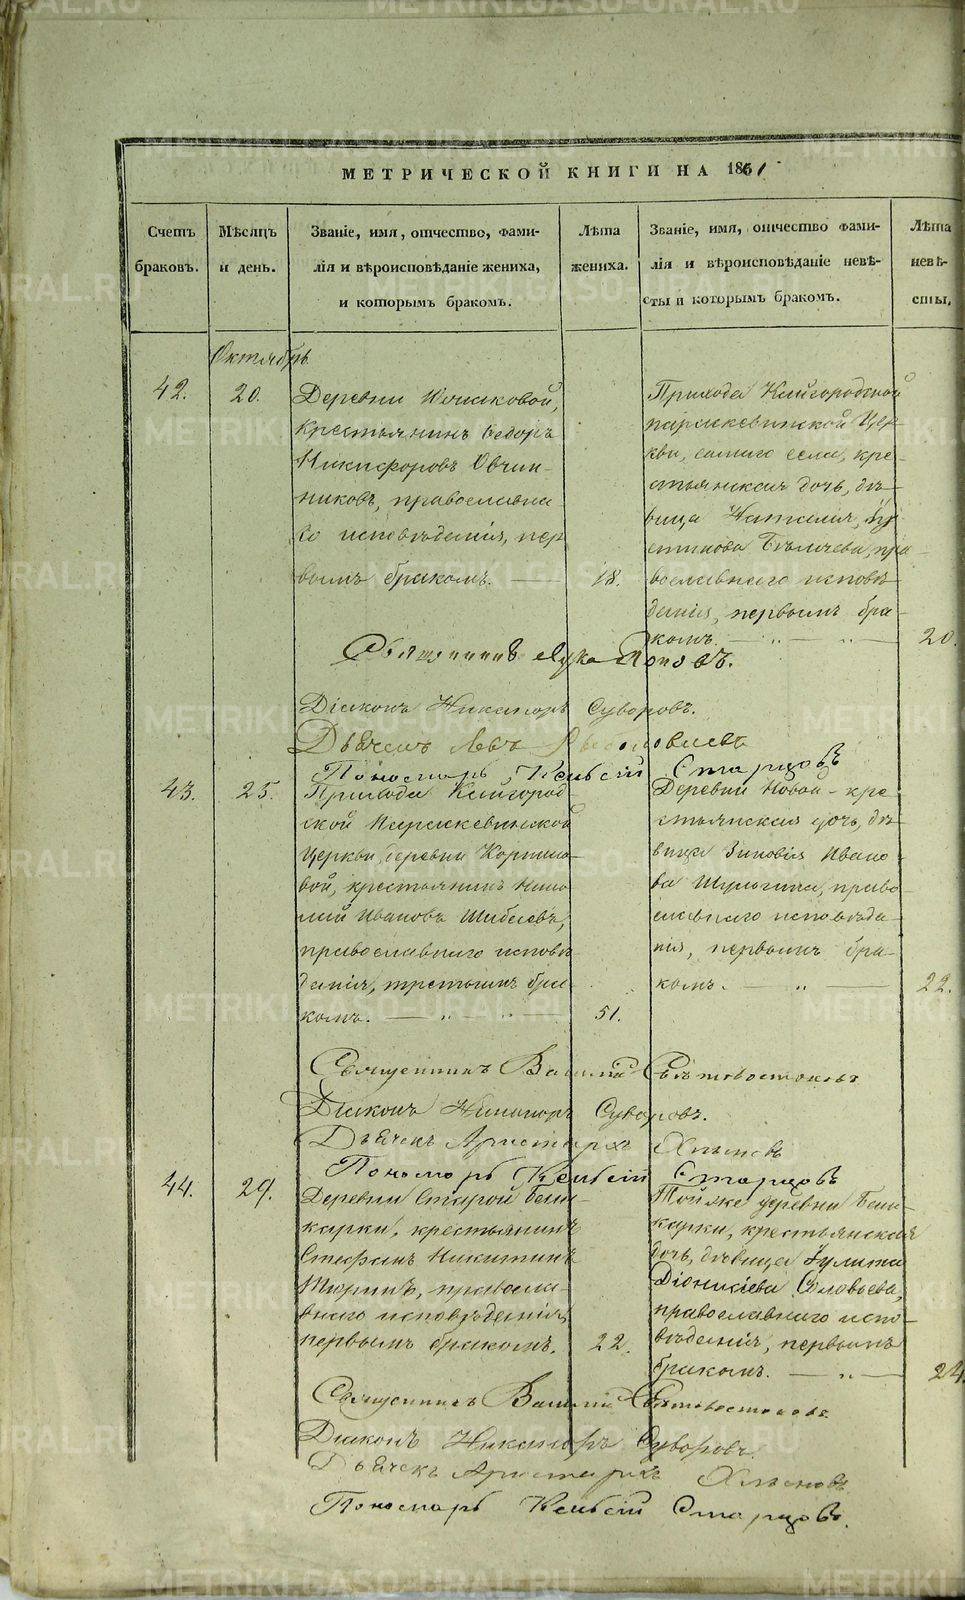 МЕТРИЧЕСКОЙ КНИГИ НА 1861
Счетъ браковъ.
Мѣсяцъ и день.
Званіе, имя, отчество, фами-
лія и вѣроисповѣданіе жениха,
и которымъ бракомъ.
Лѣта жениха.
Званіе, имя, отчество фами-
лія и вѣроисповѣданіе невѣ-
сты и которымъ бракомъ.
Лѣта невѣ-
сты,
Октябрь
42.
20.
Деревни
крестьянинъ Ѳедоръ
Никифоровъ Овчин-
никовъ, православна
го исповѣданія, пер
вымъ бракомъ.
18.
Прихода Кайгородской
параскевинской Цер-
кви, самаго села, кре-
стьянская дочь, дѣ-
вица Наталия
Бѣляева, пра-
вославнаго исповѣ-
данія, первымъ бра-
комъ.
20.
Священникъ Лука Поповъ.
Діаконъ Никаноръ Суворовъ.
Дьячекъ Левъ
Пономарь Старцовъ
43.
25.
Прихода Кайгород-
ской Параскевинской
Церкви деревни Корнило-
вой, крестьянинъ
Ивановъ Шибаевъ,
православнаго исповѣ-
данія, третьимъ бра-
комъ.
51.
Деревни Новой - кре
стьянская дочь, дѣ-
вица Зиновія Ивано-
ва Шульгина, право-
славнаго исповѣда-
нія, первымъ бра-
комъ.
22.
Священникъ Василій Свѣтовостоковъ
Діаконъ Никаноръ Суворовъ.
Дьячекъ Аристархъ Хлыновъ
Пономарь Старцовъ
44.
29.
Деревни Старой Баш-
карки, крестьянинъ
Стефанъ Никитинъ
Тюринъ, правосла-
внаго исповѣданія,
первымъ бракомъ.
22.
Той же деревни Баш-
карки, крестьянская
дочь, дѣвица Іулита
Діонисіева Соловьева,
православнаго испо-
вѣданія, первымъ
бракомъ.
24.
Священникъ Василій Свѣтовостоковъ
Діаконъ Никаноръ Суворовъ
Дьячекъ Аристархъ Хлыновъ
Пономарь Старцовъ.
METRIKI.GASO-URAL.RU